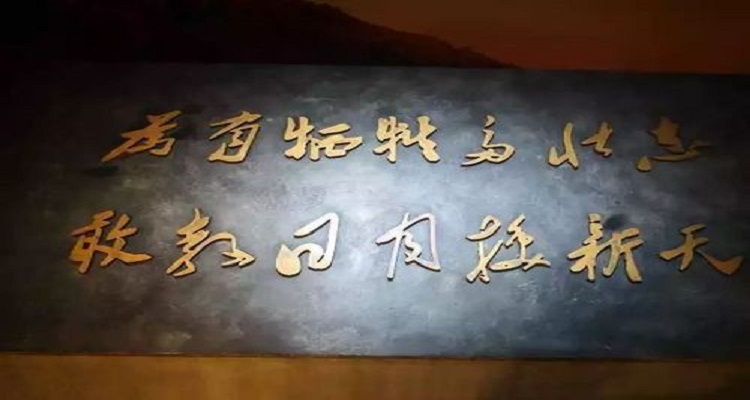 为有牺牲多壮志
敢教日月换新天